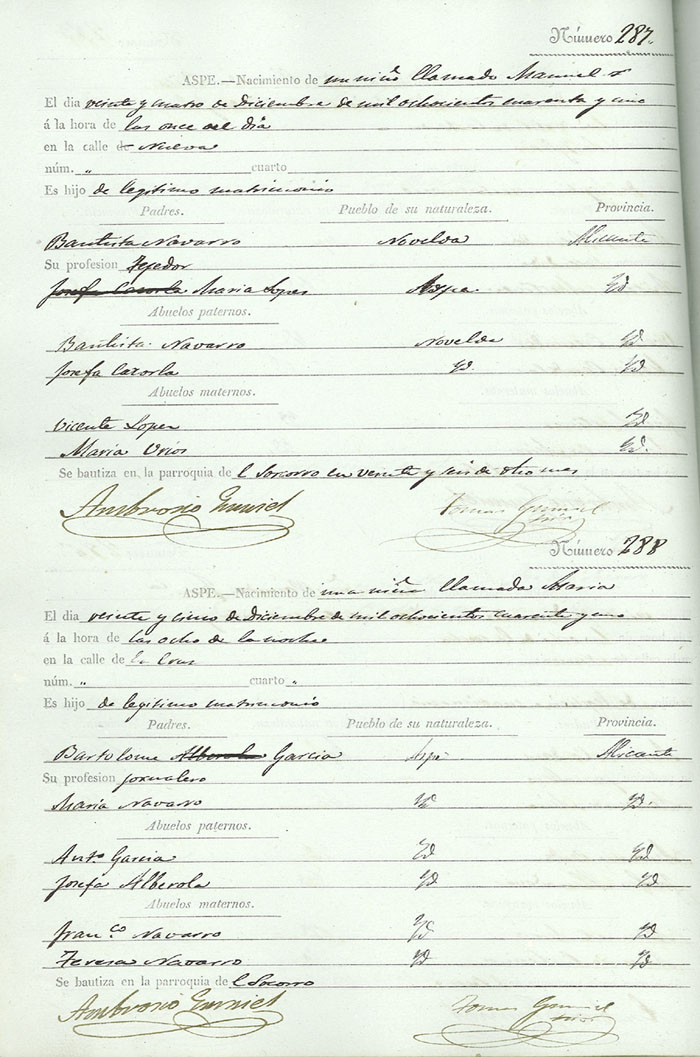 Número 287.
ASPE.—Nacimiento de un niño llamado Manuel
El dia veinte y cuatro de Diciembre de mil ochocientos cuarenta y uno
á la hora de las once del dia
en la calle de Nueva
núm. " cuarto
Es hijo de legitimo matrimonio
Padres. Pueblo de su naturaleza. Provincia.
Bautista Navarro Novelda Alicante
Su profesion Tejedor
Josefa Cazorla Maria Lopez Aspe. Yd
Abuelos paternos.
Bautista Navarro Novelda Yd
Josefa Cazorla Yd. Yd
Abuelos maternos.
Vicente Lopez Yd
Maria Urios Yd.
Se bautiza en la parroquia de l Socorro en veinte y seis de dho mes
Ambrosio Gumiel Tomas Gumiel
Número 288
ASPE.—Nacimiento de una niña llamada Maria
El dia veinte y cinco de Diciembre de mil ochocientos cuarenta y uno
á la hora de las ocho de la noche
en la calle de la Cruz
núm. " cuarto "
Es hijo de legitimo matrimonio
Padres. Pueblo de su naturaleza. Provincia.
Bartolome Alberola Garcia Aspe Alicante
Su profesion jornalero
Maria Navarro Yd Yd.
Abuelos paternos.
Anto. Garcia Yd Yd
Josefa Alberola Yd Yd
Abuelos maternos.
Fran.co Navarro Yd Yd
Teresa Navarro Yd Yd
Se bautiza en la parroquia de l Socorro
Ambrosio Gumiel Tomas Gumiel